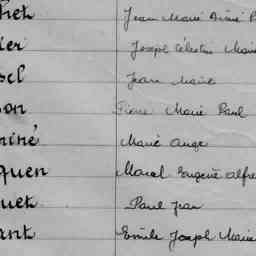 het Jean Marie Aimé P
ier Joseph Célestin Marie
sel Jean Marie
on Pierre Marie Paul
miné Marie Ange
quen Marcel Eugène Alfre
uet Paul Jean
ant Emile Joseph Marie